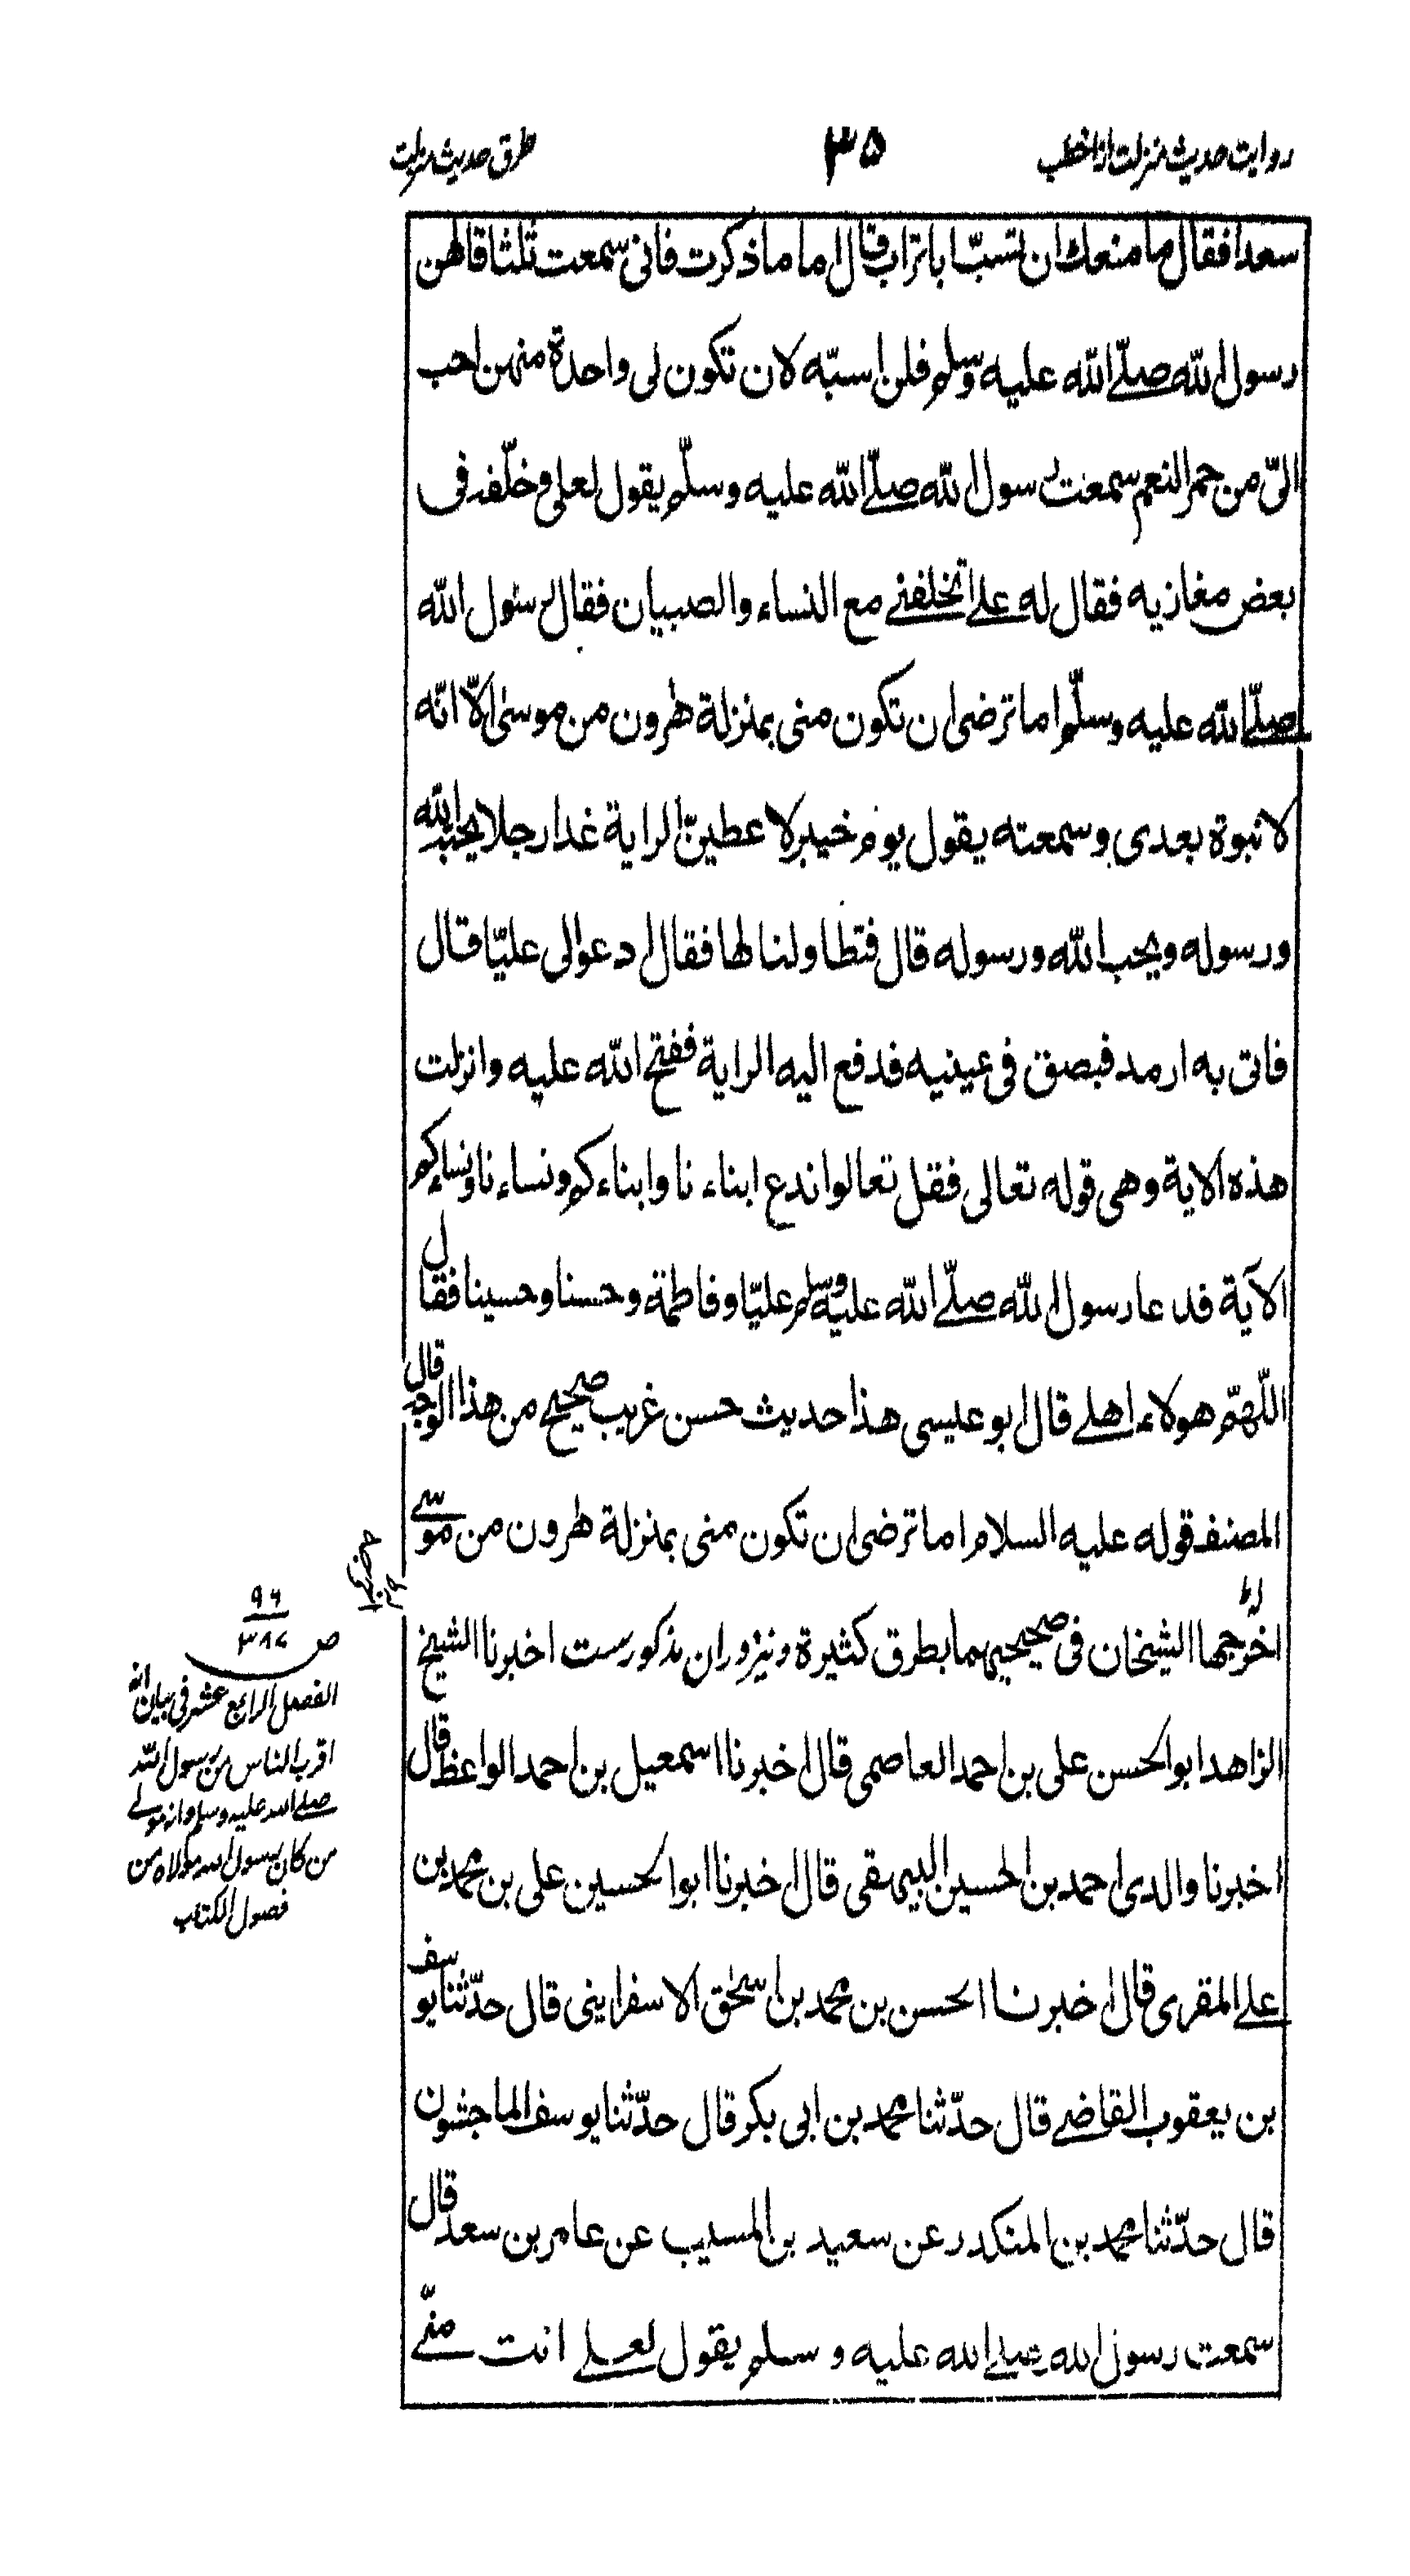 روایت حدیث منزلت از اخطب
۳۵
طرق حدیث منزلت
سعدا فقال ما منعك ان تسبّ ابا تراب قال اما ما ذكرت فانى سمعت ثلثا قالهن
رسول الله صلّے الله عليه وسلم فلن اسبّه لان تكون لى واحدة منهن احب
الىّ من حمر النعم سمعت رسول الله صلّے الله عليه وسلّم يقول لعلى و خلّفه فى
بعض مغازيه فقال له علے اتخلفنے مع النساء والصبيان فقال رسول الله
صلّے الله عليه وسلّم اما ترضى ان تكون منى بمنزلة هرون من موسى الّا انّه
لا نبوة بعدى وسمعته يقول يوم خيبر لاعطينّ الراية غدا رجلا يحبه الله
ورسوله ويحب الله ورسوله قال فتطاولنا لها فقال ادعوا لى عليّا قال
فاتى به ارمد فبصق فى عينيه فدفع اليه الراية ففتح الله عليه وانزلت
هذه الاية وهى قوله تعالى فقل تعالوا ندع ابناءنا وابناءكم ونساءنا ونساءكم
الآية فدعا رسول الله صلّے الله عليه وسلم عليّا وفاطمة وحسنا وحسينا فقال
اللّهمّ هولاء اهلے قال ابو عيسى هذا حديث حسن غريب صحيح من هذا الوجه قال
المصنف قوله عليه السلام اما ترضى ان تكون منى بمنزلة هرون من موسے
اخرجها الشيخان فى صحيحيهما بطرق كثيرة ونيز دران مذكورست اخبرنا الشيخ
الزاهد ابو الحسن على بن احمد العاصمى قال اخبرنا اسمعيل بن احمد الواعظ قال
اخبرنا والدى احمد بن الحسين البيهقى قال اخبرنا ابو الحسين على بن محمد بن
علے المقرى قال اخبرنا الحسن بن محمد بن اسحٰق الاسفراينى قال حدّثنا يوسف
بن يعقوب القاضے قال حدّثنا محمد بن ابى بكر قال حدّثنا يوسف الماجشون
قال حدّثنا محمد بن المنكدر عن سعيد بن المسيب عن عامر بن سعد قال
سمعت رسول الله صلے الله عليه وسلم يقول لعلے انت منّے
۹۶
ص ۳۸۷
الفصل الرابع عشر فى بيان انه
اقرب الناس من رسول الله
صلے الله عليه وسلم وانه مولے
من كان رسول الله مولاه من
فصول الكتاب